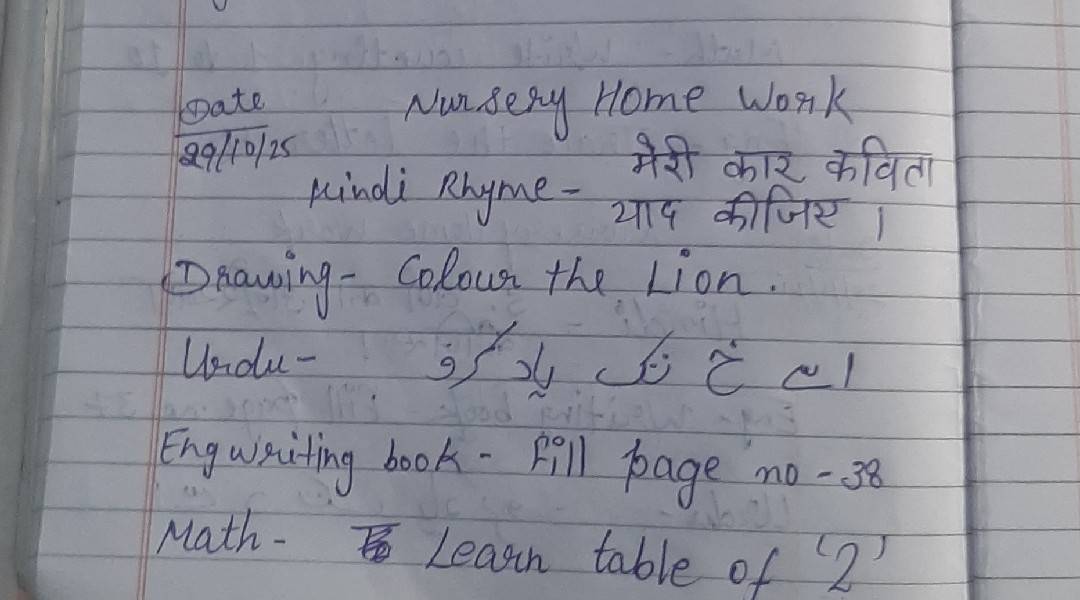 Date Nursery Home Work
29/10/25
Hindi Rhyme- मेरी कार कविता
याद कीजिए ।
Drawing- Colour the Lion.
Urdu- ا سے خ تک یاد کرو
Eng writing book - Fill page no -38
Math- Learn table of '2'